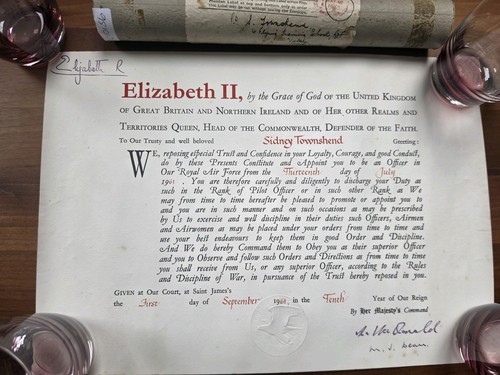 Elizabeth R
Elizabeth II, by the Grace of God OF THE UNITED KINGDOM
OF GREAT BRITAIN AND NORTHERN IRELAND AND OF HER OTHER REALMS AND
TERRITORIES QUEEN, HEAD OF THE COMMONWEALTH, DEFENDER OF THE FAITH.
To Our Trusty and well beloved Sidney Townshend Greeting:
WE, reposing especial Trust and Confidence in your Loyalty, Courage, and good Conduct,
do by these Presents Constitute and Appoint you to be an Officer in
Our Royal Air Force from the Thirteenth day of July
1961. You are therefore carefully and diligently to discharge your Duty as
such in the Rank of Pilot Officer or in such other Rank as We
may from time to time hereafter be pleased to promote or appoint you to
and you are in such manner and on such occasions as may be prescribed
by Us to exercise and well discipline in their duties such Officers, Airmen
and Airwomen as may be placed under your orders from time to time and
use your best endeavours to keep them in good Order and Discipline.
And We do hereby Command them to Obey you as their superior Officer
and you to Observe and follow such Orders and Directions as from time to time
you shall receive from Us, or any superior Officer, according to the Rules
and Discipline of War, in pursuance of the Trust hereby reposed in you.
GIVEN at Our Court, at Saint James's
the First day of September 1961, in the Tenth Year of Our Reign
By Her Majesty's Command